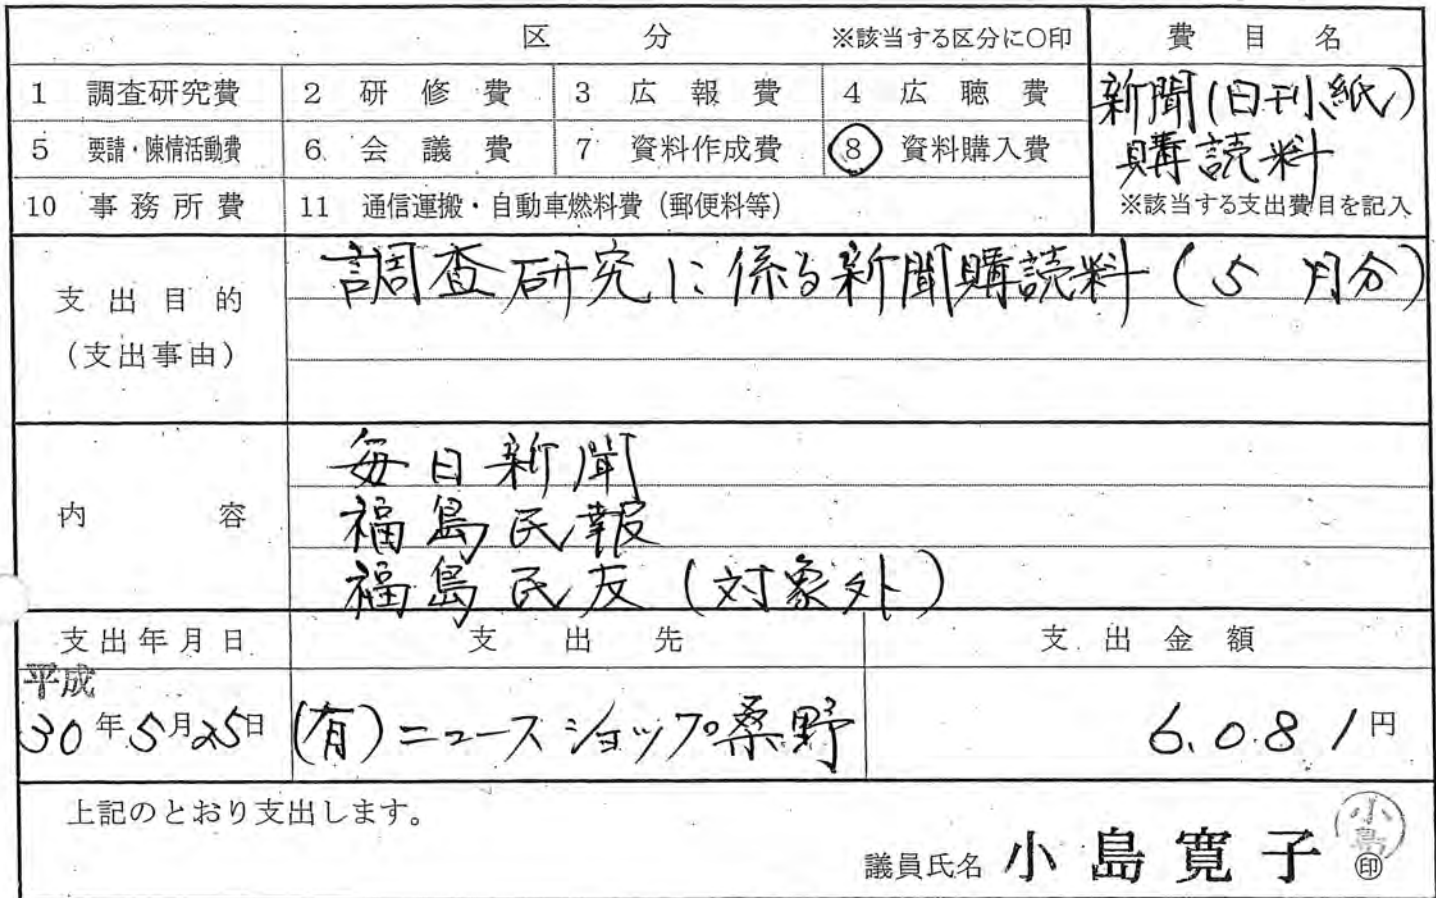 区 分 ※該当する区分に○印 費目名
1 調査研究費 2 研修費 3 広報費 4 広聴費 新聞(日刊紙)
5 要請・陳情活動費 6 会議費 7 資料作成費 8 資料購入費 購読料
10 事務所費 11 通信運搬・自動車燃料費(郵便料等) ※該当する支出費目を記入
支出目的 調査研究に係る新聞購読料(5月分)
(支出事由)
毎日新聞
内容 福島民報
福島民友(対象外)
支出年月日 支出先 支出金額
平成
30年5月25日 (有)ニュースショップ桑野 6,081円
上記のとおり支出します。
議員氏名 小島寛子 小島 印